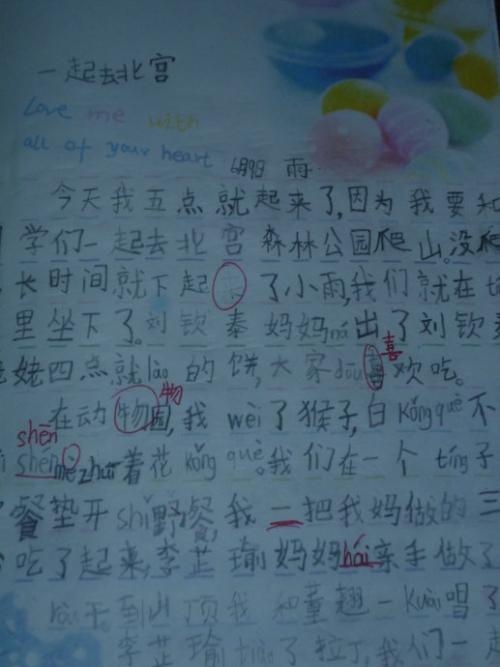 一起去北宫
Love me with
all of your heart
6月9日 雨
今天我五点就起来了,因为我要和
学们一起去北宫森林公园爬山。没爬
长时间就下起了小雨,我们就在
里坐下了。刘钦泰妈妈ná出了刘钦泰
姥四点就lào的饼,大家dōu喜欢吃。
在动物园,我wèi了猴子,白kǒng què不
shén
shén me zhāi着花kǒng què。我们在一个tíng子
餐垫开shǐ野餐,我一把我妈做的三
吃了起来,李芷瑜妈妈hái亲手做了
干。到山顶我和董翘一kuài唱了
李芷瑜tiào了拉丁,我们一